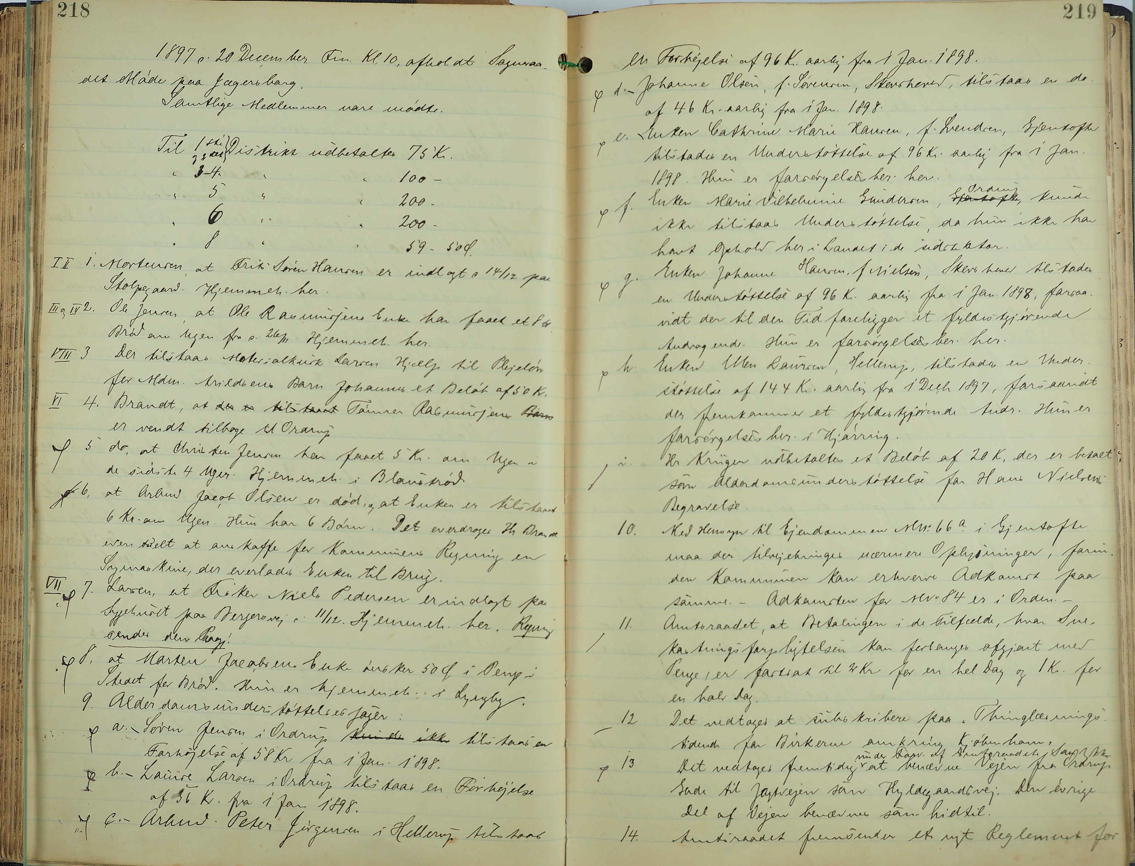 218
1897 d. 20 December Fm. Kl 10, afholdt Sogneraa-
det Møde paa Jægersborg.
Samtlige Medlemmer vare mødte.
Til 1ste 2det Distrikt udbetaltes 75 K.
" 3-4. " " 100 -
" 5 " " 200 -
" 6 " " 200 -
" 8 " 59 - 50 Ø.
I II 1. Mortensen, at Frits Søren Hansen er indlagt d 14/12 paa
Stolpegaard. Hjemmeh. her.
III og IV 2. Ole Jensen, at Ole Rasmussens Enke har faaet et
Brød om Ugen fra d. Hjemmeh. her.
VIII 3 Der tilstaas Larsen Hjælp til Plejeløn
for Barn Johannes et Beløb af 50 K.
VI 4. Brandt, at der er tilstaaet Tømrer Rasmussens Børn
er vendt tilbage til Ordrup
5 do, at Christen Jensen har faaet 5 K. om Ugen i
de sidste 4 Uger. Hjemmeh. i Blaustrød.
6. at Arbmd Jacob Olsen er død, og at Enken er tilstaaet
6 K. om Ugen. Hun har 6 Børn. Det overdroges Hr Brandt
eventuelt at anskaffe for Kommunens Regning en
Symaskine, der overlades Enken til Brug.
VII 7. Larsen, at Frøken Niels Pedersen er indlagt paa
paa d. 11/12. Hjemmeh. her. Regning
sendes den
8. at Morten Jacobsens Enke ønsker 50 Ø i Penge i
Stedet for Brød. Hun er hjemmeh. i Lyngby.
9 Alderdomsunderstøttelsessager:
a. - Søren Jensen i Ordrup kunde ikke tilstaas en
Forhøjelse af 58 Kr fra 1 Jan. 1898.
b. - Laurs Larsen i Ordrup tilstaas en Forhøjelse
af 56 K. fra 1 Jan 1898.
c. - Arbmd. Peter Jørgensen i Hellerup tilstaas
219
en Forhøjelse af 96 K. aarlig fra 1 Jan. 1898.
d. - Johanne Olsen, f. Sørensen, Skovshoved, tilstaas en do
af 46 Kr. aarlig fra 1 Jan. 1898.
e. Enken Cathrine Marie Hansen, f. Svendsen, Gjentofte
tilstades en Understøttelse af 96 Kr. aarlig fra 1 Jan.
1898. Hun er forsørgelsesber. her.
f. Enken Marie Vilhelmine Gundersen, Gjentofte Ordrup, kunde
ikke tilstaas Understøttelse, da hun ikke har
havt Ophold her i Landet i de
g. Enken Johanne Hansen, f. Nielsen, Skovshoved tilstades
en Understøttelse af 96 K. aarlig fra 1 Jan 1898, forsaa-
vidt der til den Tid foreligger et fyldestgjørende
Andragende. Hun er forsørgelsesber. her.
h. Enken Laursen, Hellerup, tilstades en Under-
støttelse af 144 K. aarlig fra 1 Decb 1897, forsaavidt
der fremkommer et fyldestgjørende Andr. Hun er
forsørgelsesber. i Hjørring.
i. Hr Krüger udbetaltes et Beløb af 20 K, der er betalt
som Alderdomsunderstøttelse for Hans Nielsens
Begravelse.
10. Med Hensyn til Ejendommen Mtr. 66a i Gjentofte
maa der tilvejebringes nærmere Oplysninger, forin-
den Kommunen kan erhverve Adkomst paa
samme. - Adkomsten for Mtr. 84 er i Orden. -
11. Amtsraadet, at Betalingen i de Tilfælde, hvor Sne-
kastningsforpligtelsen kan forlanges afgjort med
Penge, er fastsat til 2 Kr for en hel Dag og 1 K. for
en halv Dag.
12 Det vedtoges at subskribere paa "Thinglæsnings-
tidende for Birkerne omkring Kjøbenhavn."
13 Det vedtoges fremtidig, under Forv. af Amtsraadets Samtykke at benævne Vejen fra Ordrup
Gade til Jagtvejen som Hyldegaardsvej. Den øvrige
Del af Vejen benævnes som hidtil.
14. Amtsraadet fremsender et nyt Reglement for